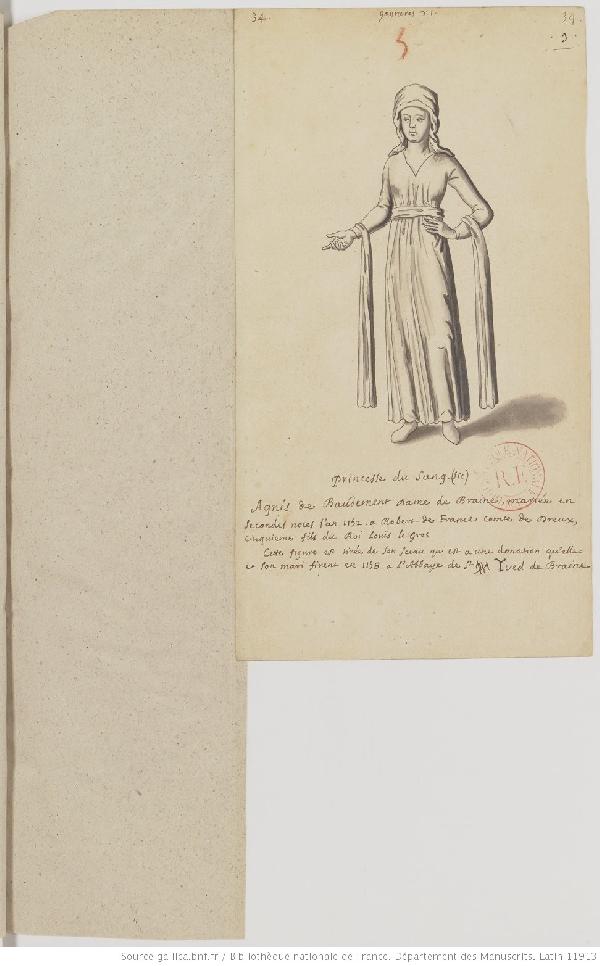 34.
Gaignières
39.
3
5
Princesse du Sang (sic)
BIBLIOTHÈQUE NATIONALE
R.F.
Agnès de Baudement dame de Braine, mariée en
secondes noces l'an 1152. a Robert de France comte de Dreux,
cinquieme fils du Roi Louis le Gros
Cette figure est tirée de son sceau qui est a une donation qu'elle
et son mari firent en 1158 a l'Abbaye de St. Yved de Braine
Source gallica.bnf.fr / Bibliothèque nationale de France. Département des Manuscrits. Latin 11913